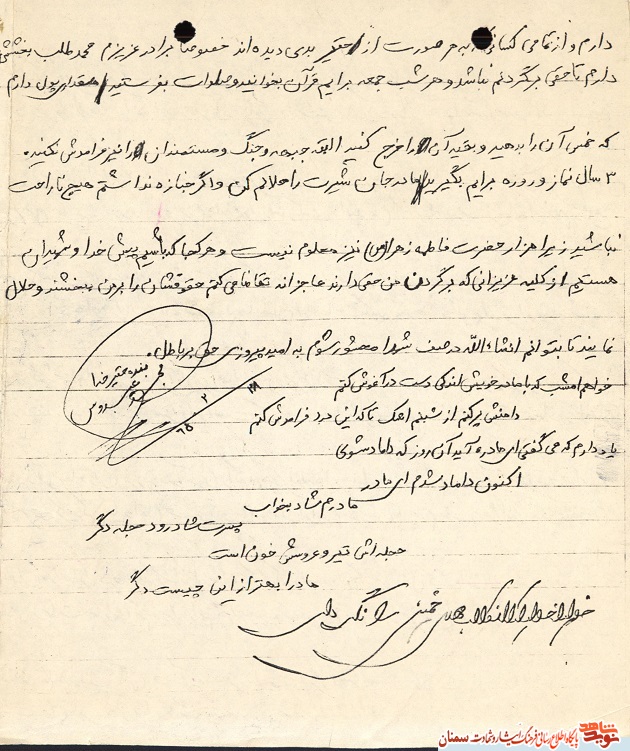 دارم و از تمامی کسانیکه به هر صورت از حقیر بدی دیده‌اند خصوصاً برادر عزیزم محمد طلب بخشش
دارم تا حقی بر گردنم نباشد و هر شب جمعه برایم قرآن بخوانید و صلوات بفرستید مقداری پول دارم
که خمس آن را بدهید و بقیه آن را خرج کنید البته جبهه و جنگ و مستمندان را نیز فراموش نکنید.
۳ سال نماز و روزه برایم بگیرید مادر جان شیرت را حلالم کن و اگر جنازه نداشتم هیچ ناراحت
نباشید زیرا مزار حضرت فاطمه زهرا (س) نیز معلوم نیست و هر کجا که باشیم پیش خدا و شهیدان
هستیم از کلیه عزیزانی که بر گردن من حق دارند عاجزانه تقاضا می‌کنم حقوقشان را بر من ببخشند و حلال
نمایند تا بتوانم انشاءالله در صف شهدا محشور شوم به امید پیروزی حق بر باطل.
بنده حقیر خدا
۶۵ / ۲ /
خواهم امشب که با مادر خویش اندکی دست در آغوش کنم
دامنش پر کنم از شبنم اشک تا که این درد فراموش کنم
یاد دارم که می گفتی ای مادر آید آن روز که داماد شوی
اکنون داماد شدم ای مادر
مادرم شاد بخواب
پسرت شاد رود حجله دگر
حجله اش تیر و عروسش خون است
مادرا بهتر از این چیست دگر
خدایا خدایا تا انقلاب مهدی خمینی را نگه دار
نوید شاهد
پایگاه اطلاع رسانی فرهنگ ایثار و شهادت سمنان